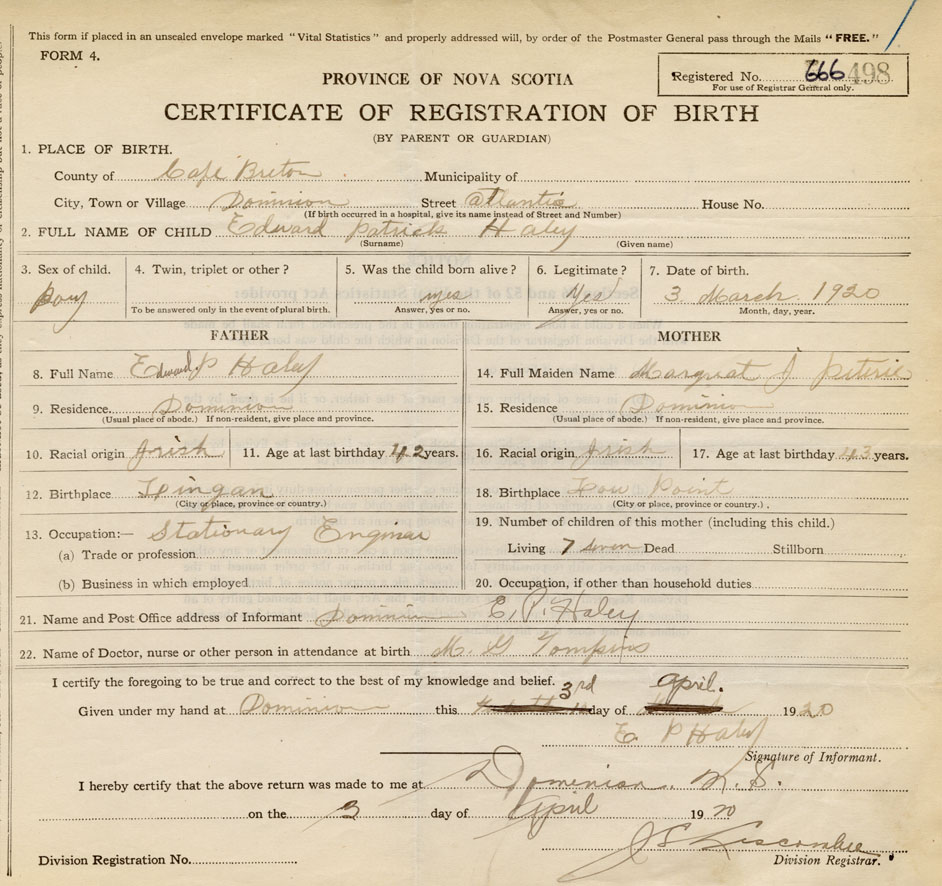 This form if placed in an unsealed envelope marked "Vital Statistics" and properly addressed will, by order of the Postmaster General pass through the Mails "FREE."
FORM 4.
PROVINCE OF NOVA SCOTIA
Registered No. 666 498
For use of Registrar General only.
CERTIFICATE OF REGISTRATION OF BIRTH
(BY PARENT OR GUARDIAN)
1. PLACE OF BIRTH.
County of Cape Breton Municipality of
City, Town or Village Dominion Street atlantic House No.
(If birth occurred in a hospital, give its name instead of Street and Number)
2. FULL NAME OF CHILD Edward Patrick Haley
(Surname) (Given name)
3. Sex of child. 4. Twin, triplet or other? 5. Was the child born alive? 6. Legitimate? 7. Date of birth.
Boy yes Yes 3 March 1920
To be answered only in the event of plural birth. Answer, yes or no. Answer, yes or no. Month, day, year.
FATHER MOTHER
8. Full Name Edward P Haley 14. Full Maiden Name Margreat J Peterie
9. Residence Dominion 15. Residence Dominion
(Usual place of abode.) If non-resident, give place and province. (Usual place of abode.) If non-resident, give place and province.
10. Racial origin Irish 11. Age at last birthday 42 years. 16. Racial origin Irish 17. Age at last birthday 43 years.
12. Birthplace Lingan 18. Birthplace Low Point
(City or place, province or country.) (City or place, province or country.)
13. Occupation:— Stationary Enginear 19. Number of children of this mother (including this child.)
(a) Trade or profession Living 7 seven Dead Stillborn
(b) Business in which employed 20. Occupation, if other than household duties
21. Name and Post Office address of Informant Dominion E. P. Haley
22. Name of Doctor, nurse or other person in attendance at birth M. G Tompkins
I certify the foregoing to be true and correct to the best of my knowledge and belief.
Given under my hand at Dominion this 3rd day of April. 1920
E P Haley
Signature of Informant.
I hereby certify that the above return was made to me at Dominion. N. S.
on the 3 day of April 1920
Division Registration No.
Division Registrar.